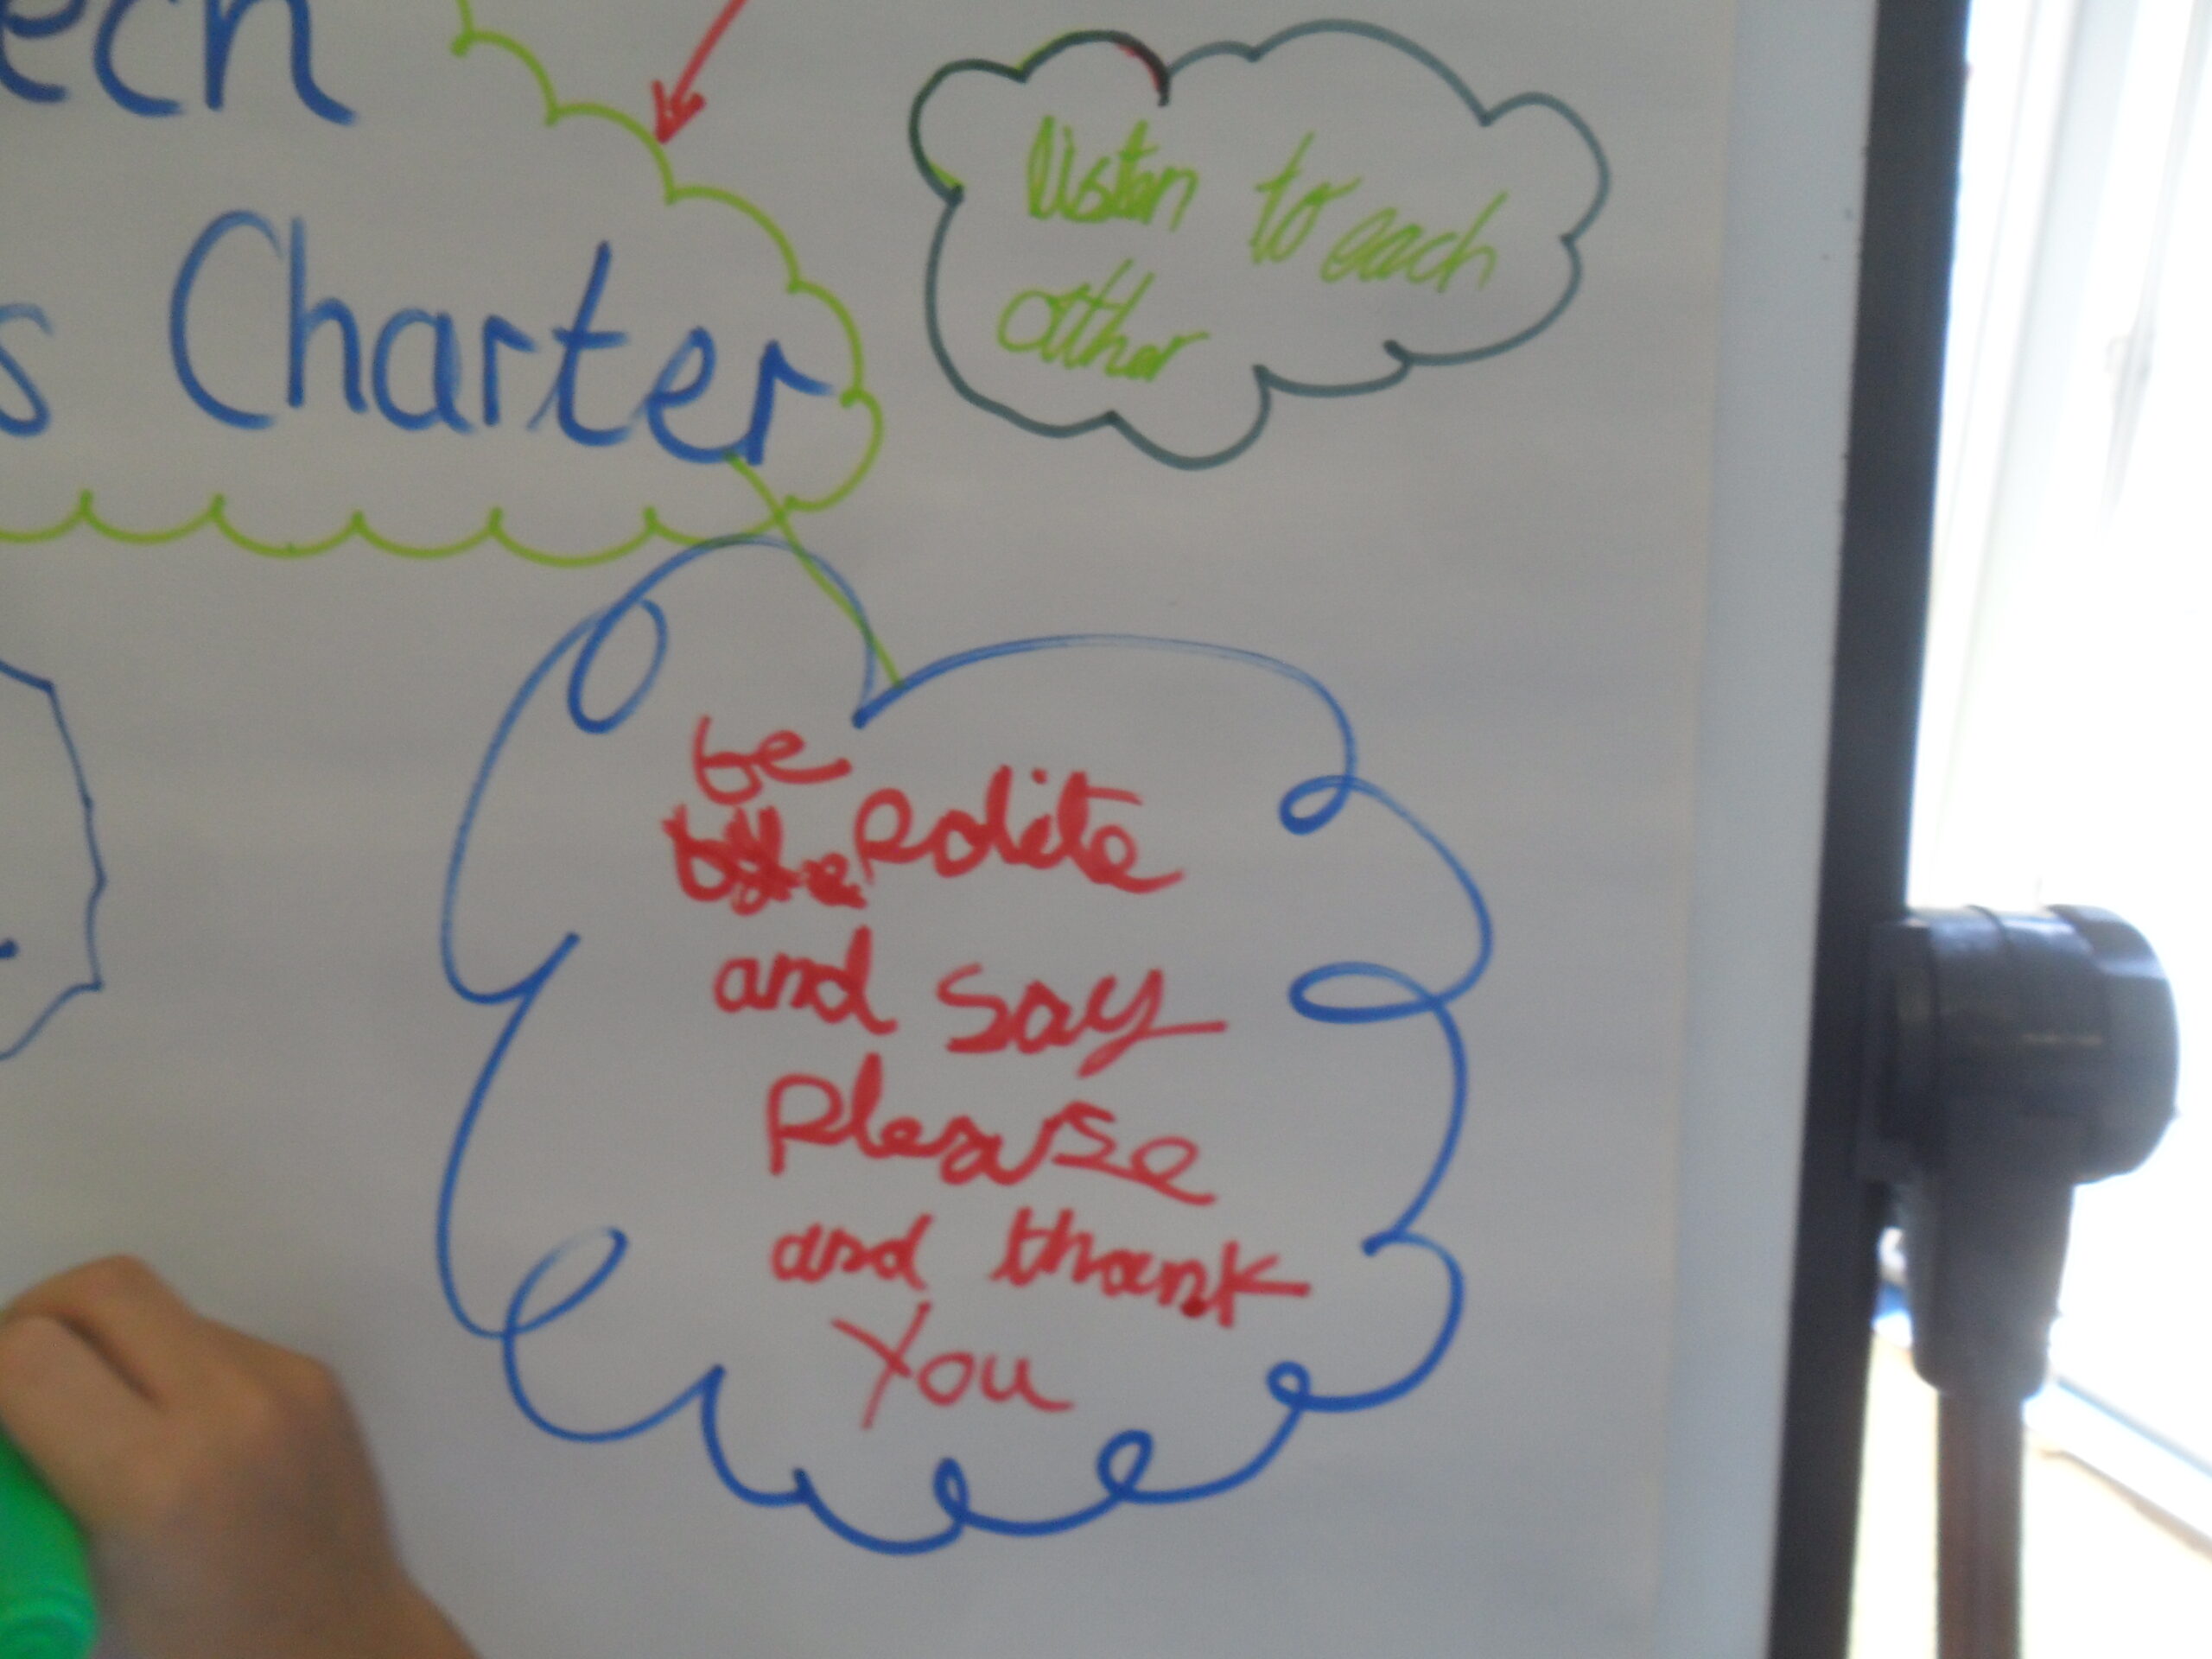 ech
s Charter
listen to each
other
be
polite
and say
Please
and thank
You